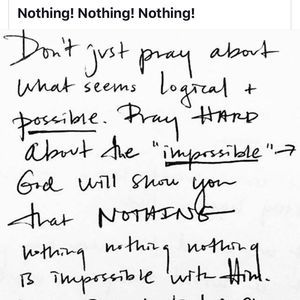 Nothing! Nothing! Nothing!
Don't just pray about
what seems logical +
possible. Pray HARD
about the "impossible" →
God will show you
that NOTHING
nothing nothing nothing
is impossible with Him.